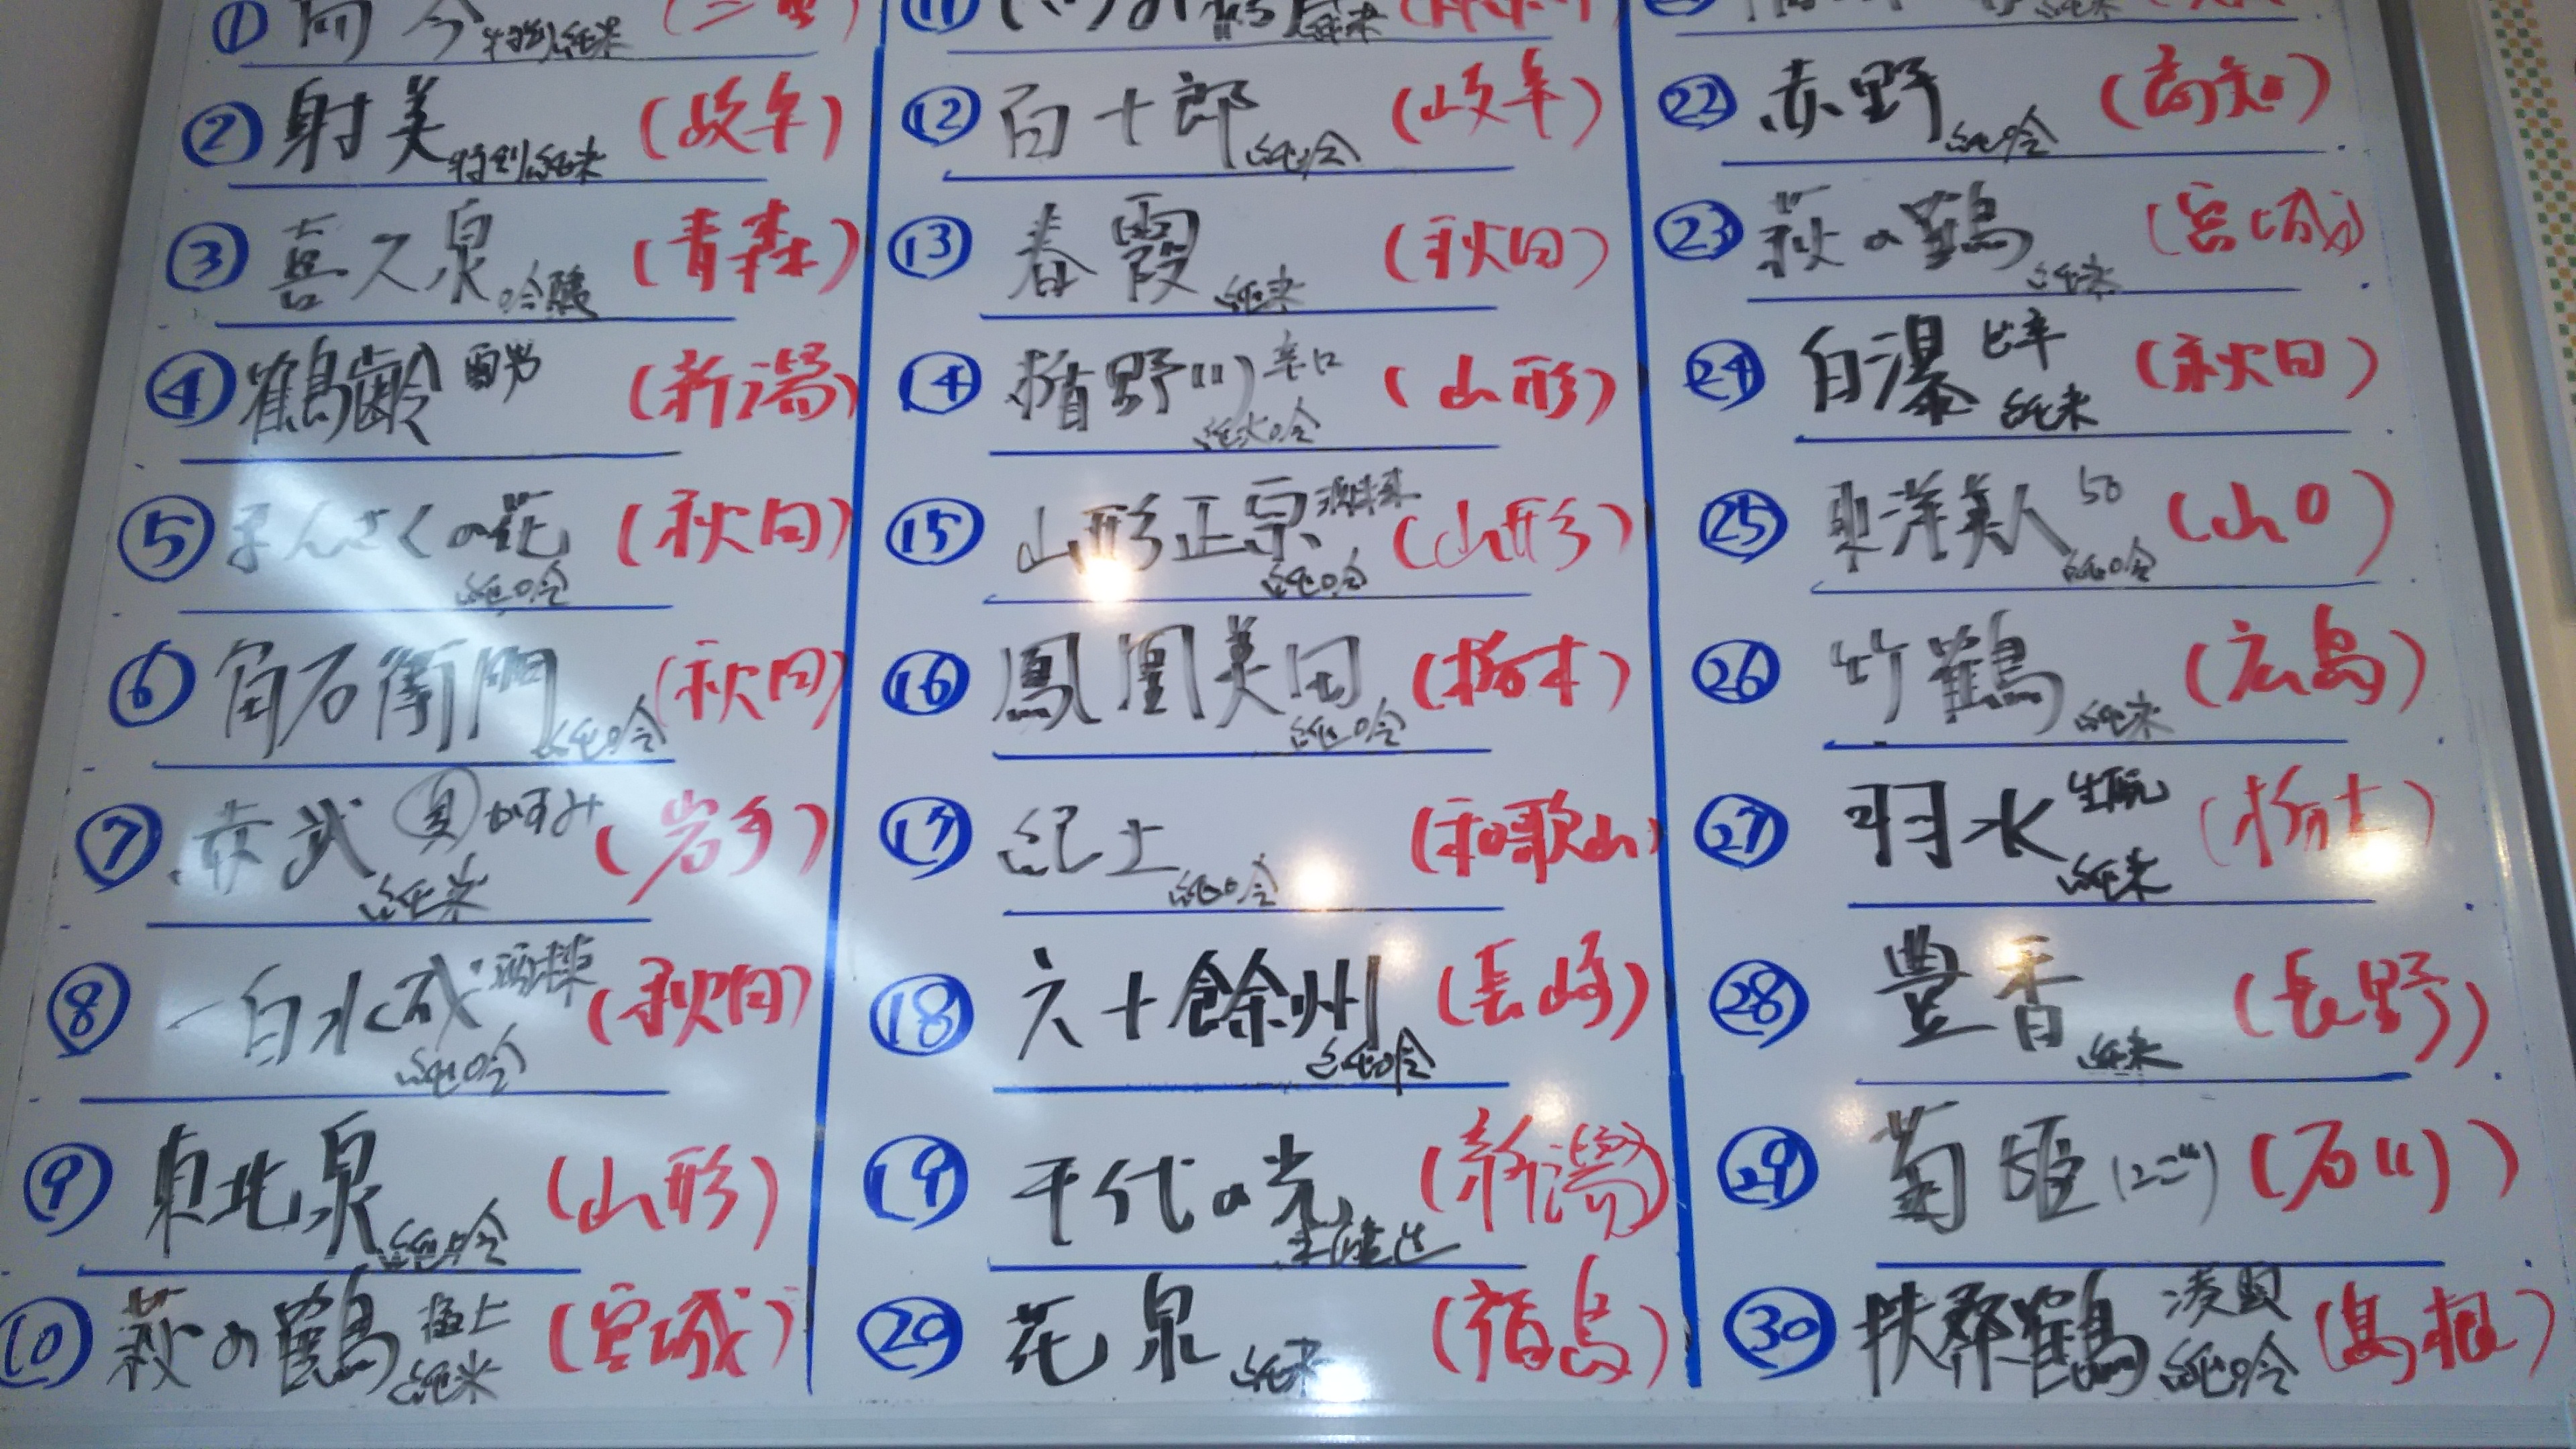 ① 而今 特別純米 (三重)
② 射美 特別純米 (岐阜)
③ 喜久泉 吟醸 (青森)
④ 鶴齢 雪男 (新潟)
⑤ まんさくの花 純吟 (秋田)
⑥ 角右衛門 純吟 (秋田)
⑦ 赤武 夏がすみ 純米 (岩手)
⑧ 一白水成 酒未来 純吟 (秋田)
⑨ 東北泉 純吟 (山形)
⑩ 萩の鶴 極上 純米 (宮城)
⑪ 純米
⑫ 百十郎 純吟 (岐阜)
⑬ 春霞 純米 (秋田)
⑭ 楯野川 辛口 純大吟 (山形)
⑮ 山形正宗 酒未来 純吟 (山形)
⑯ 鳳凰美田 純吟 (栃木)
⑰ 紀土 純吟 (和歌山)
⑱ 六十餘州 純吟 (長崎)
⑲ 千代の光 (新潟)
⑳ 花泉 純米 (福島)
純米
㉒ 赤野 純吟 (高知)
㉓ 萩の鶴 純米 (宮城)
㉔ 白瀑 ど辛 純米 (秋田)
㉕ 東洋美人 50 純吟 (山口)
㉖ 竹鶴 純米 (広島)
㉗ 羽水 生酛 純米 (栃木)
㉘ 豊香 純米 (長野)
㉙ 菊姫 (にごり) (石川)
㉚ 扶桑鶴 涼風 純吟 (島根)